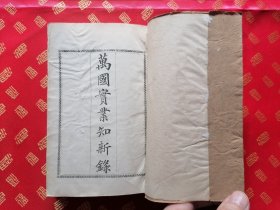 萬國實業知新錄